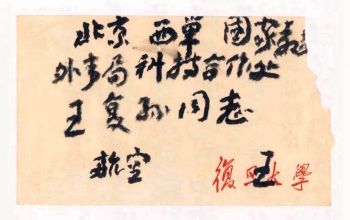 北京 西單 國家教委
外事局 科技合作处
王复孙同志
航空 復旦大學 王